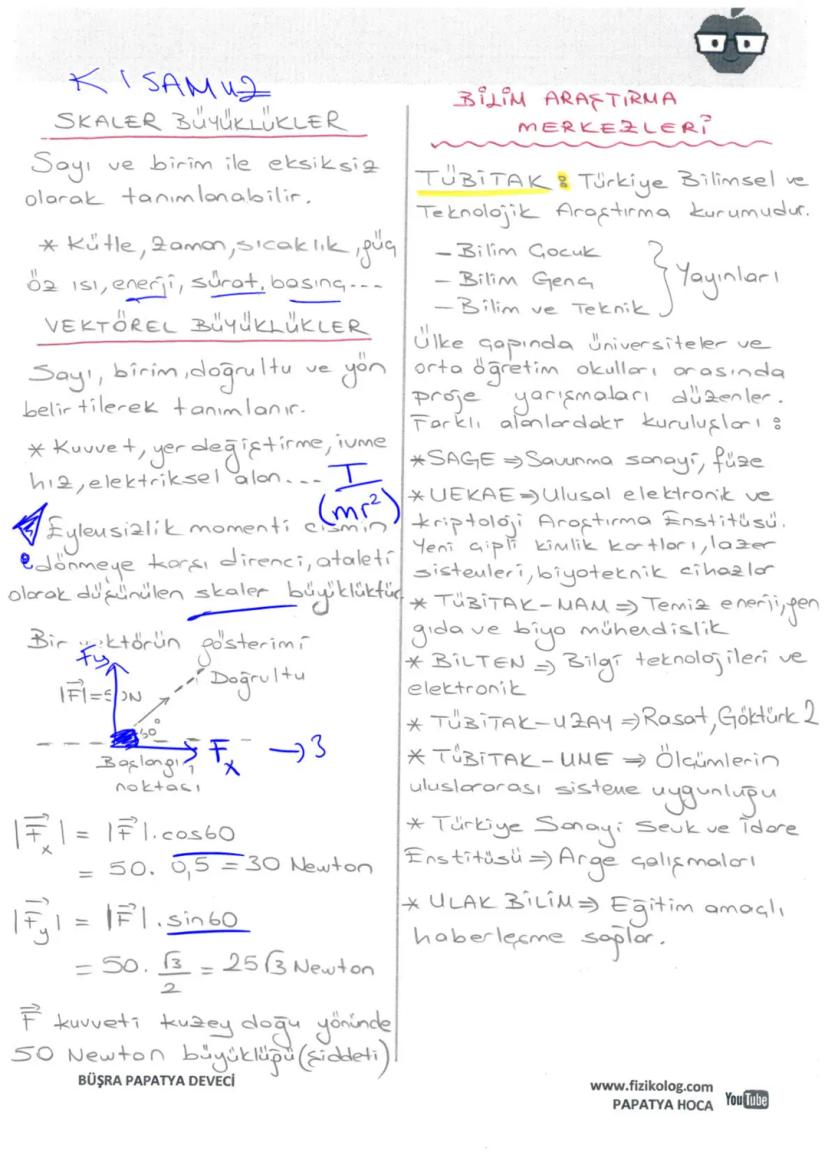 KISAMUZ
SKALER BÜYÜKLÜKLER
Sayı ve birim ile eksiksiz
olarak tanımlanabilir.
* Kütle, zaman, sıcaklık, güç
öz ısı, enerji, sürat, basınç...
VEKTÖREL BÜYÜKLÜKLER
Sayı, birim, doğrultu ve yön
belirtilerek tanımlanır.
* Kuvvet, yer değiştirme, ivme
hız, elektriksel alan...
I
(mr²)
Eylemsizlik momenti cismin
dönmeye karşı direnci, ataleti
olarak düşünülen skaler büyüklüktür
Bir vektörün gösterimi
Fy
Doğrultu
|F⃗|=50N
60°
Fx → 3
Başlangıç
noktası
|F⃗x| = |F⃗|.cos60
= 50. 0,5 = 30 Newton
|F⃗y| = |F⃗|.sin60
= 50. √3/2 = 25√3 Newton
F⃗ kuvveti kuzey doğu yönünde
50 Newton büyüklüğü (şiddeti)
BÜŞRA PAPATYA DEVECİ
BİLİM ARAŞTIRMA
MERKEZLERİ
TÜBİTAK : Türkiye Bilimsel ve
Teknolojik Araştırma kurumudur.
- Bilim Çocuk
- Bilim Genç
- Bilim ve Teknik
} Yayınları
Ülke çapında üniversiteler ve
orta öğretim okulları arasında
proje yarışmaları düzenler.
Farklı alanlardakı kuruluşları :
* SAGE ⇒ Savunma sanayi, füze
* UEKAE ⇒ Ulusal elektronik ve
kriptoloji Araştırma Enstitüsü.
Yeni çipli kimlik kartları, lazer
sistemleri, biyoteknik cihazlar
* TÜBİTAK-MAM ⇒ Temiz enerji, gen
gıda ve biyo mühendislik
* BİLTEN ⇒ Bilgi teknolojileri ve
elektronik
* TÜBİTAK-UZAY ⇒ Rasat, Göktürk 2
* TÜBİTAK-UME ⇒ Ölçümlerin
uluslararası sisteme uygunluğu
* Türkiye Sanayi Sevk ve İdare
Enstitüsü ⇒ Arge çalışmaları
* ULAK BİLİM ⇒ Eğitim amaçlı
haberleşme sağlar.
www.fizikolog.com
PAPATYA HOCA YouTube